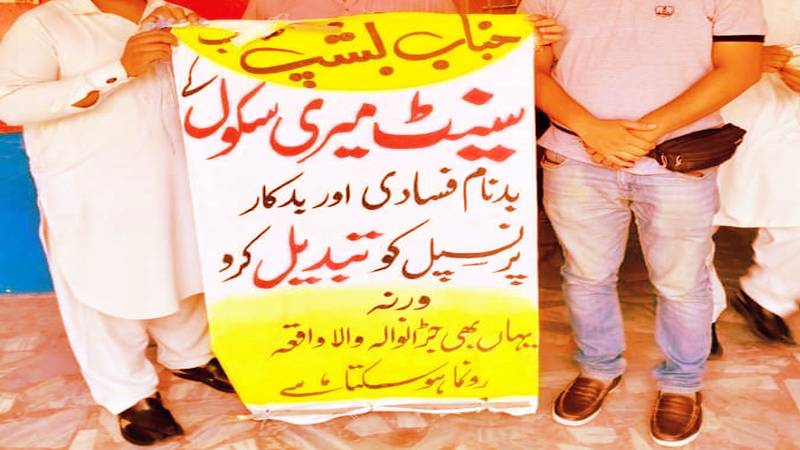 جناب بشپ صاحب
سینٹ میری سکول کے
بدنام فسادی اور بدکار
پرنسپل کو تبدیل کرو
ورنہ
یہاں بھی جڑانوالہ والا واقعہ
رونما ہوسکتا ہے